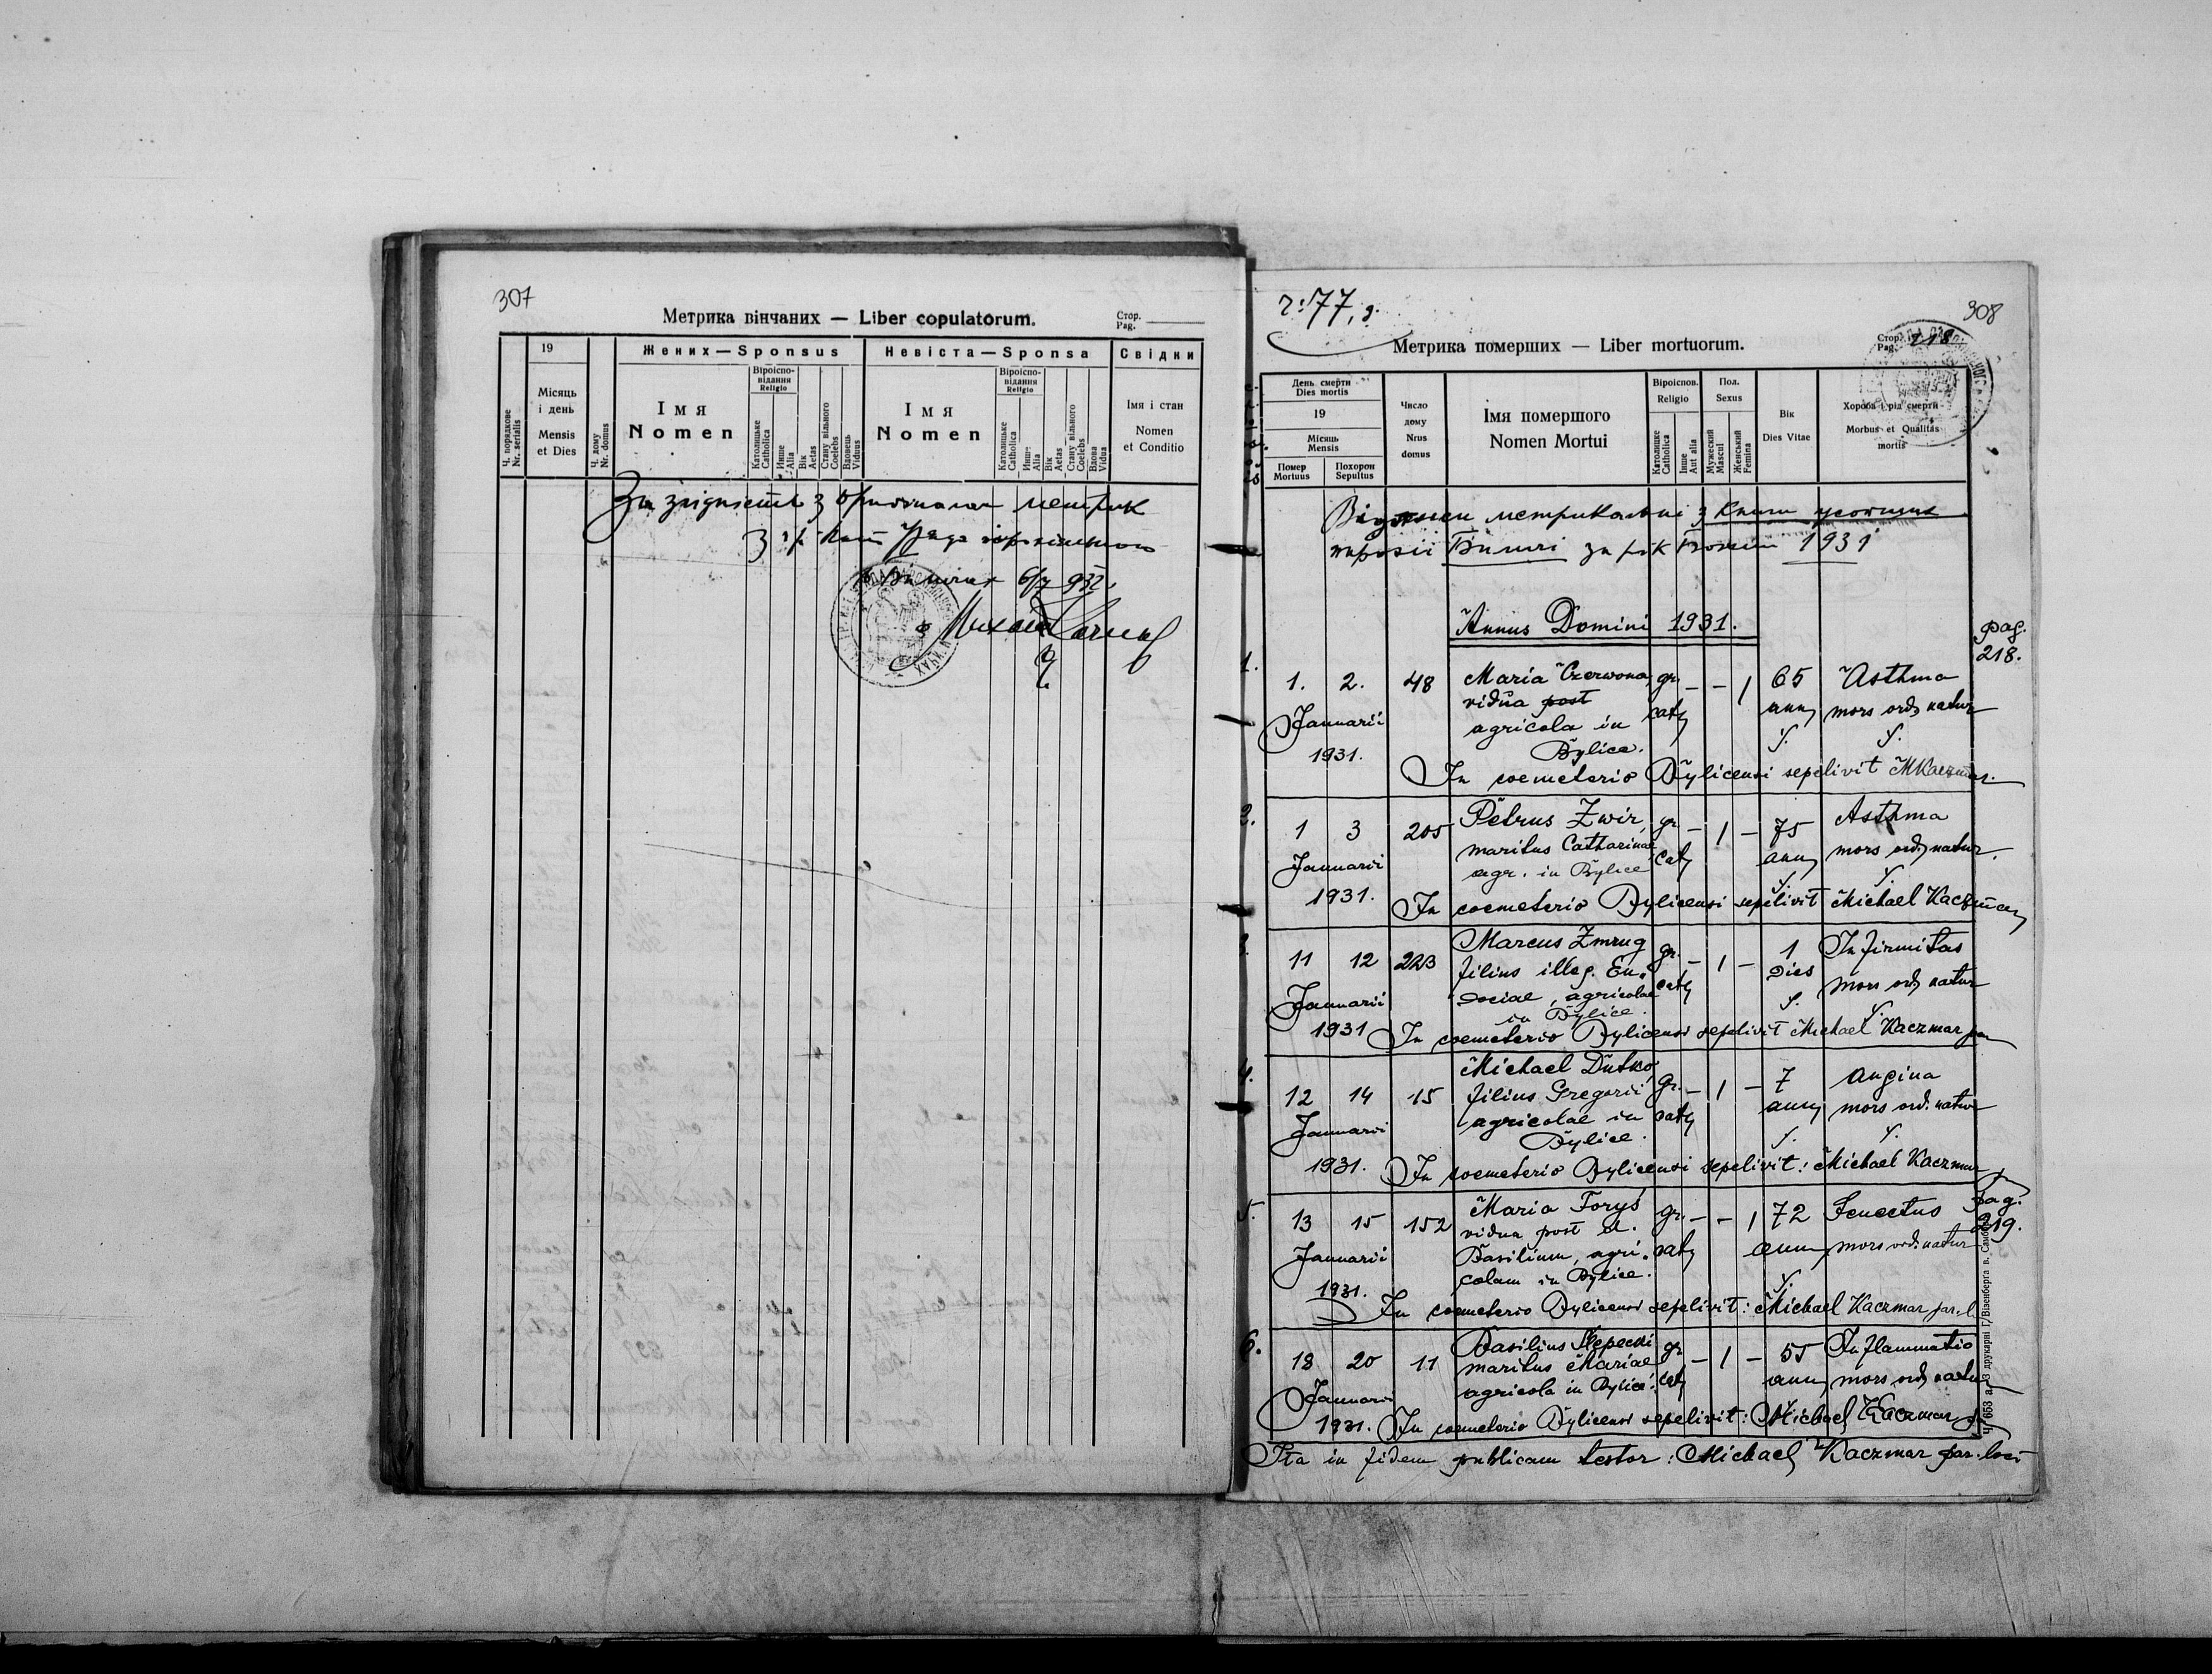 307
Метрика вінчаних — Liber copulatorum.
Стор.
Pag.
Ч. порядкове
Nr. serialis
19
Місяць
і день
Mensis
et Dies
Ч. дому
Nr. domus
Жених — Sponsus
Імя
Nomen
Віроіспо-
відання
Religio
Католицьке
Catholica
Инше
Alia
Вік
Aetas
Стану вільного
Coelebs
Вдовець
Viduus
Невіста — Sponsa
Імя
Nomen
Віроіспо-
відання
Religio
Католицьке
Catholica
Инше
Alia
Вік
Aetas
Стану вільного
Coelebs
Вдова
Vidua
Свідки
Імя і стан
Nomen
et Conditio
За згідність з метрик
ч: 77,
308
Метрика померших — Liber mortuorum.
Стор.
Pag. 218
День смерти
Dies mortis
19
Місяць
Mensis
Помер
Mortuus
Похорон
Sepultus
Число
дому
Nrus
domus
Імя помершого
Nomen Mortui
Віроіспов.
Religio
Католицке
Catholica
Інше
Aut alia
Пол.
Sexus
Мужеский
Mascul
Женский
Femina
Вік
Dies Vitae
Хороба і рід смерти
Morbus et Qualitas
mortis
метрикальні з книги
за рік 1931
Annus Domini 1931.
pag.
218.
1. 1. 2. 48 Maria Czerwona, gr. – – 1 65 Asthma
vidua post cath ann mors ord natur
Januarii agricola in
1931. Bylice.
In coemeterio Bylicensi sepelivit MKaczmar.
2. 1 3 205 Petrus Zwir, gr – 1 – 75 Asthma
maritus Catharinae cath ann mors ord natur.
Januarii agr. in Bylice
1931. In coemeterio Bylicensi sepelivit Michael Kaczmar
3. 11 12 223 Marcus Zmrug gr. – 1 – 1 Infirmitas
filius illeg. Eu„ cath Dies mors ord natur
Januarii dociae, agricolae
in Bylice.
1931 In coemeterio Bylicensi sepelivit Michael Kaczmar
4. 12 14 15 Michael Dutko, gr. – 1 – 7 angina
filius Gregorii cath ann mors ord. natur
Januarii agricolae in
Bylice.
1931. In coemeterio Bylicensi sepelivit: Michael Kaczmar
pag.
219.
5. 13 15 152 Maria Foryś gr. – – 1 72 Senectus
vidua post cath ann mors ord. natur
Januarii Basilium, agri„
colam in Bylice.
1931.
In coemeterio Bylicensi sepelivit: Michael Kaczmar par. l.
6. 18 20 11 Basilius Slepecki gr – 1 – 55 Inflammatio
maritus Mariae cath ann mors ord natur
Januarii agricola in Bylice.
1931. In coemeterio Bylicensi sepelivit: Michael Kaczmar
Ita in fidem publicam testor: Michael Kaczmar par. loci